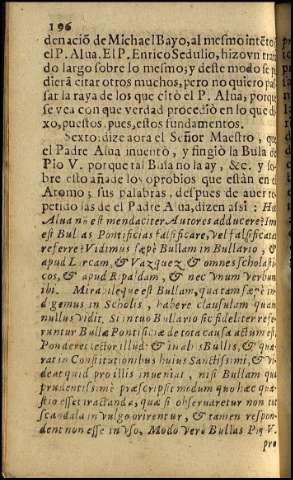 196
denació de Michael Bayo, al mesmo intēto
el P. Alua. El P. Enrico Sedulio, hizo vn tra
do largo sobre lo mesmo; y deste modo se p
dierā citar otros muchos, pero no quiero pa
sar la raya de los que citó el P. Alua, porque
se vea con que verdad procedió en lo que di
xo, puestos, pues, estos fundamentos.
Sexto: dize aora el Señor Maestro, que
el Padre Alua inuentò, y fingiò la Bula de
Pio V. porque tal Bula no la ay, &c. y so
bre esto añade los oprobios que están en el
Atomo; sus palabras, despues de auer re
petido las de el Padre Alua, dizen assi: Hoc
Alua nō est mendaciter Autores adducere? Im
est Bullas Pontificias falsificare, vel falsificata
referre? Vidimus sæpè Bullam in Bullario, &
apud Lorcam, & Vazquez & omnes scholasti
cos, & apud Ripaldam, & nec vnum verbum
ibi. Mira ileque est Bullam, quatam sæpè in
dgemus in Scholis, habere clausulam quam
nullus vidit. Si in tuo Bullario sic fideliter refe
runtur Bullæ Pontificiæ de tota causa actum est.
Ponderet lector illud: & in alijs Bullis, & quæ
rat in Constitutionibus huius Sanctissimi, & vi
deat quid pro illis inueniat, nisi Bullam qua
prudentissimè præscripsit modum quo hæc quæ
stio esset tractanda, quæ si obseruaretur non tot
scandala in vulgo orirentur, & tamen respon
dent non esse in vso, Modo verò Bullas Pij V.
pro